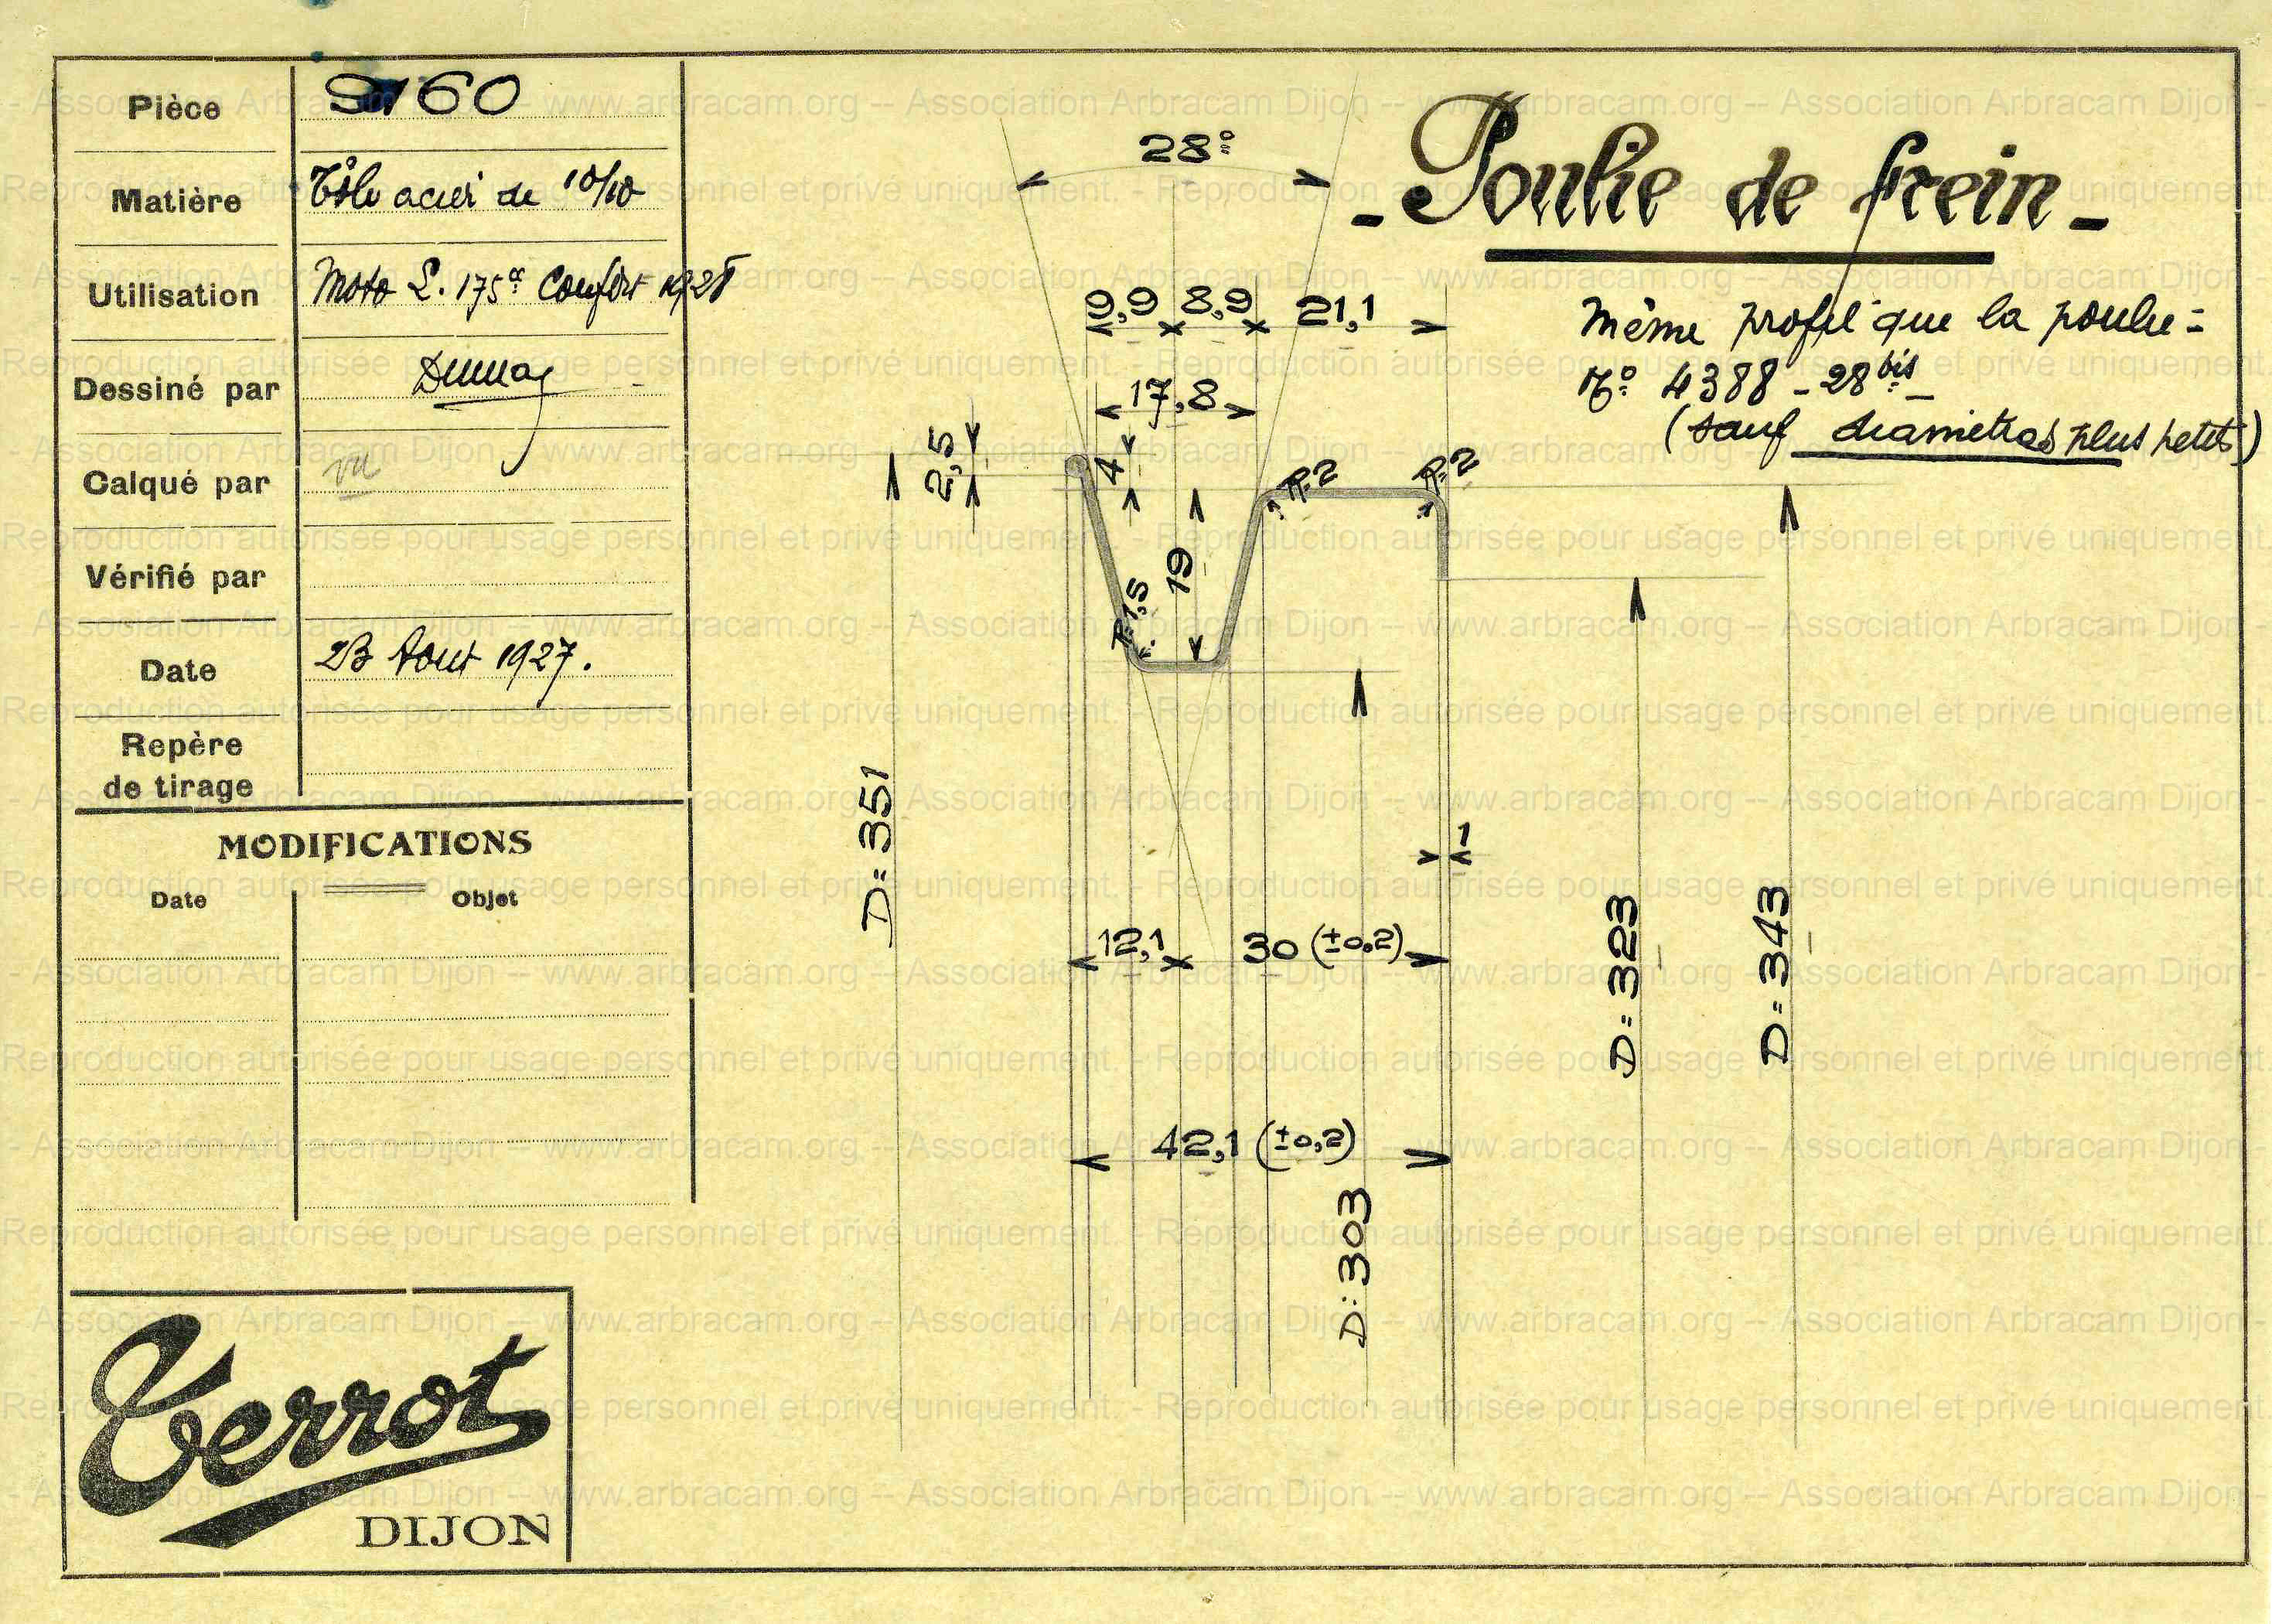 Pièce 9160
Matière Tôle acier de 10/10
Utilisation Moto L. 175cc Confort 1928
Dessiné par
Calqué par vu
Vérifié par
Date 23 Aout 1927.
Repère
de tirage
MODIFICATIONS
Date Objet
Terrot
DIJON
- Poulie de frein -
Même profil que la poulie =
No 4388 - 28 bis -
(sauf diamètres plus petits)
28°
9,9 8,9 21,1
17,8
2,5
4
R=2
R=2
19
R=1,5
D=351
1
12,1 30 (±0,2)
D=323
D=343
42,1 (±0,2)
D=303
- Association Arbracam Dijon -- www.arbracam.org -- Association Arbracam Dijon -- www.arbracam.org -- Association Arbracam Dijon -
Reproduction autorisée pour usage personnel et privé uniquement. - Reproduction autorisée pour usage personnel et privé uniquement.